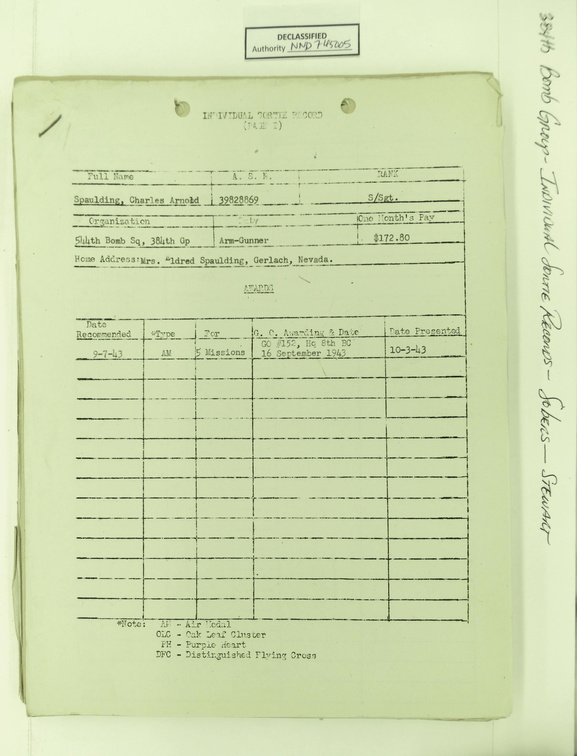 DECLASSIFIED
Authority NND 745005
384th Bomb Group - Individual Sortie Records - Sobers - Stewart
INDIVIDUAL SORTIE RECORD
(PAGE I)
Full Name A. S. N. RANK
Spaulding, Charles Arnold 39828869 S/Sgt.
Organization Duty One Month's Pay
544th Bomb Sq, 384th Gp Arm-Gunner $172.80
Home Address: Mrs. ldred Spaulding, Gerlach, Nevada.
AWARDS
Date
Recommended *Type For G. O. Awarding & Date Date Presented
9-7-43 AM 5 Missions GO #152, Hq 8th BC 10-3-43
16 September 1943
*Note: AM - Air Medal
OLC - Oak Leaf Cluster
PH - Purple Heart
DFC - Distinguished Flying Cross